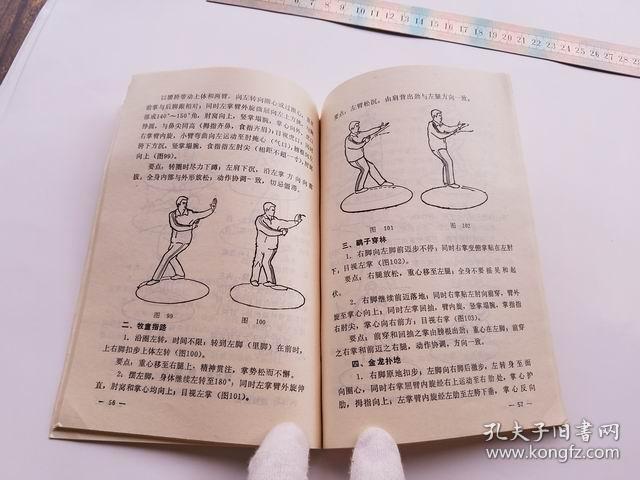 以腰胯带动上体和两臂，向左转向圈心或过圈心，
前掌与后脚跟相对；同时左掌臂外旋
部成140°～150°角，肘窝向上，竖掌塌腕，掌心向外，
与鼻尖同高（拇指齐鼻，食指齐眉）；目视虎口，
右掌臂内旋，小臂弯曲向左运动至肘抱心（气口），
胯下方沉，竖掌塌腕，食指指左肘尖（相距不超一寸），
向上（图99）。
要点：转圈时尽力下蹲；左肩下沉，沿左掌方向
拔，全身内部与外形放松；动作协调一致，切忌僵滞。
图 99
图 100
二、牧童指路
1．沿圈左转，时间不限；转到左脚（里脚）在前时，
上右脚扣步上体左转（图100）。
要点：重心移至右腿上，精神贯注，掌势松而不懈。
2．摆左脚，身体继续左转至180°，同时左掌臂外旋伸
直，肘窝和掌心均向上；目视左掌（图101）。
— 56 —
要点：左臂松沉，由肩背出劲与左腿方向一致。
图 101
图 102
三、鹞子穿林
1．右脚向左脚前迈步不停；同时右掌变俯掌贴在左肘
下，目视左掌（图102）。
要点：右腿放松，重心移至左腿；全身不要摇晃和起
伏。
2．右脚继续前迈落地；同时右掌贴左肘向前穿，臂外
旋至掌心向上；同时左掌回抽，臂内旋，竖掌塌腕，掌指指
右肘尖，掌心向右前方；目视右掌（图103）。
要点：前穿和回抽之掌由膀根出劲；重心在左脚，前穿
之右掌和前迈之右腿，动作协调，方向一致。
四、金龙扑地
1．右脚原地扣步，左脚向右脚后撤步，左转身至面
向圈心，同时右掌屈臂内旋经右上运动至右肋处，掌心护
肋，拇指向上；左掌臂内旋经左肋至左胯下垂，掌心反向
— 57 —
孔夫子旧书网
www.kongfz.com